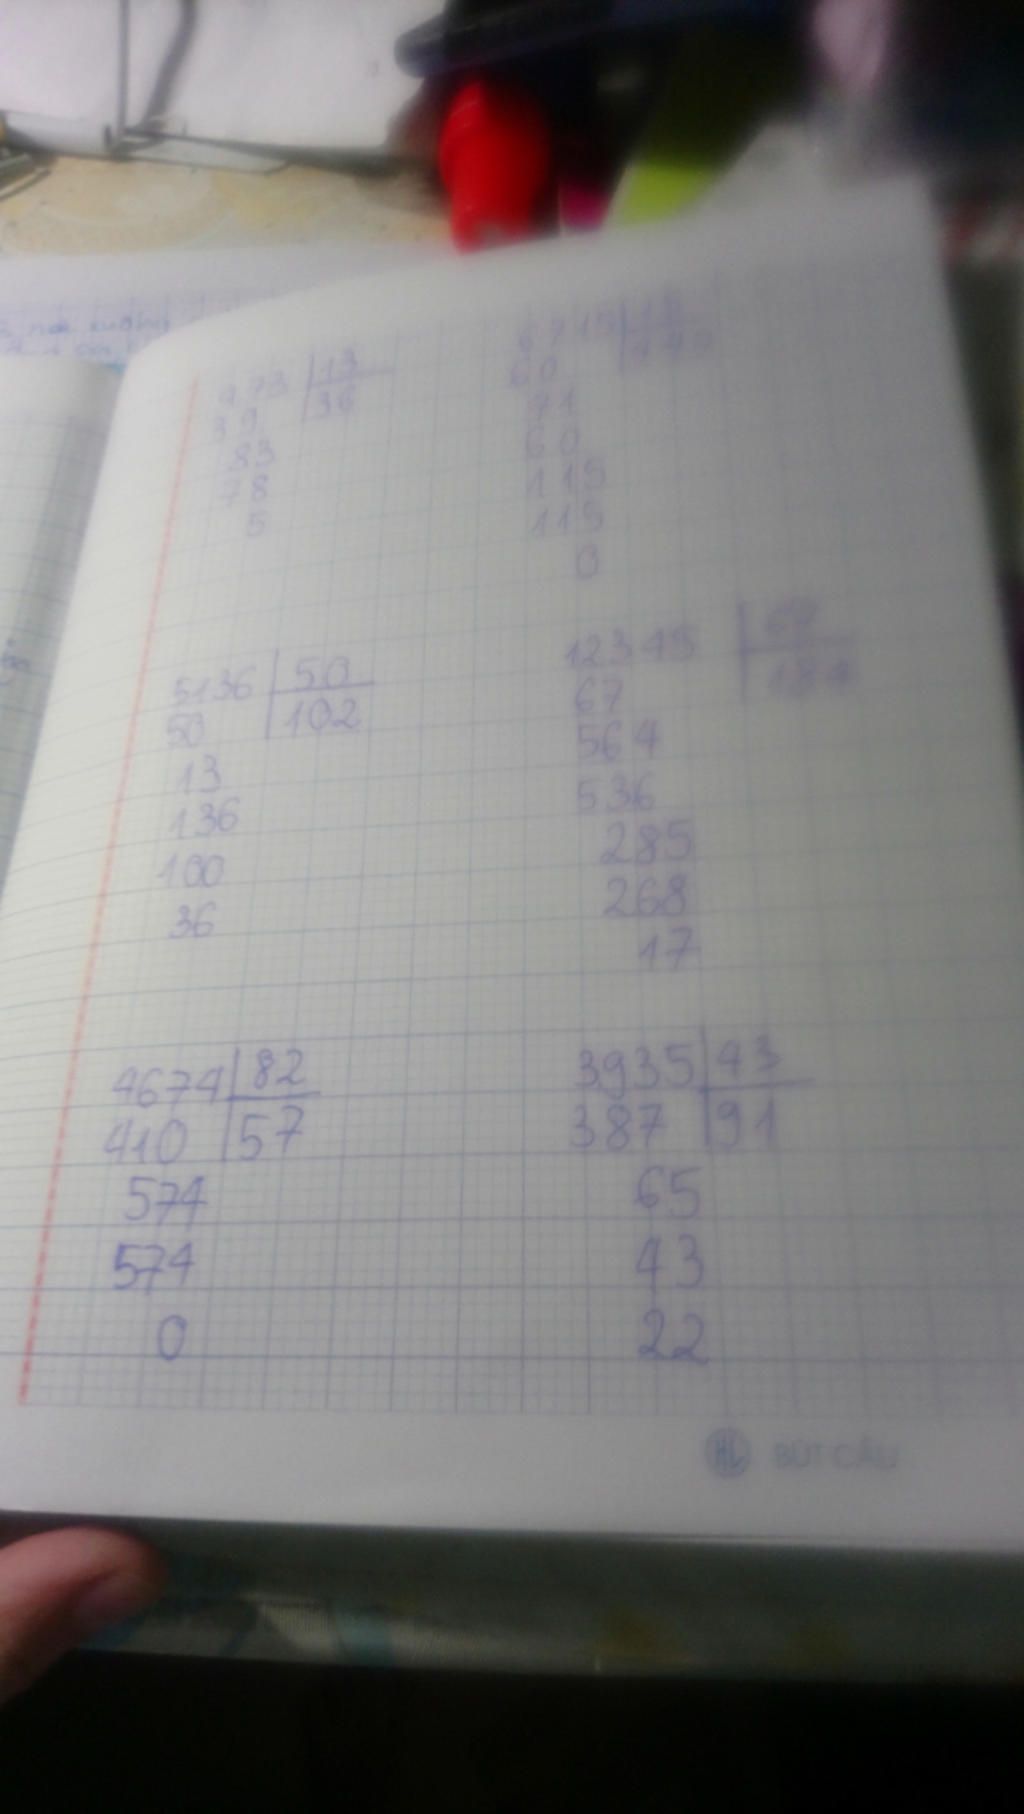 473 13
39 36
83
78
5
6715 15
60
71
60
115
115
0
5136 50
50 102
13
136
100
36
12345 67
67 184
564
536
285
268
17
4674 82
410 57
574
574
0
3935 43
387 91
65
43
22
HL BÚT CẦU